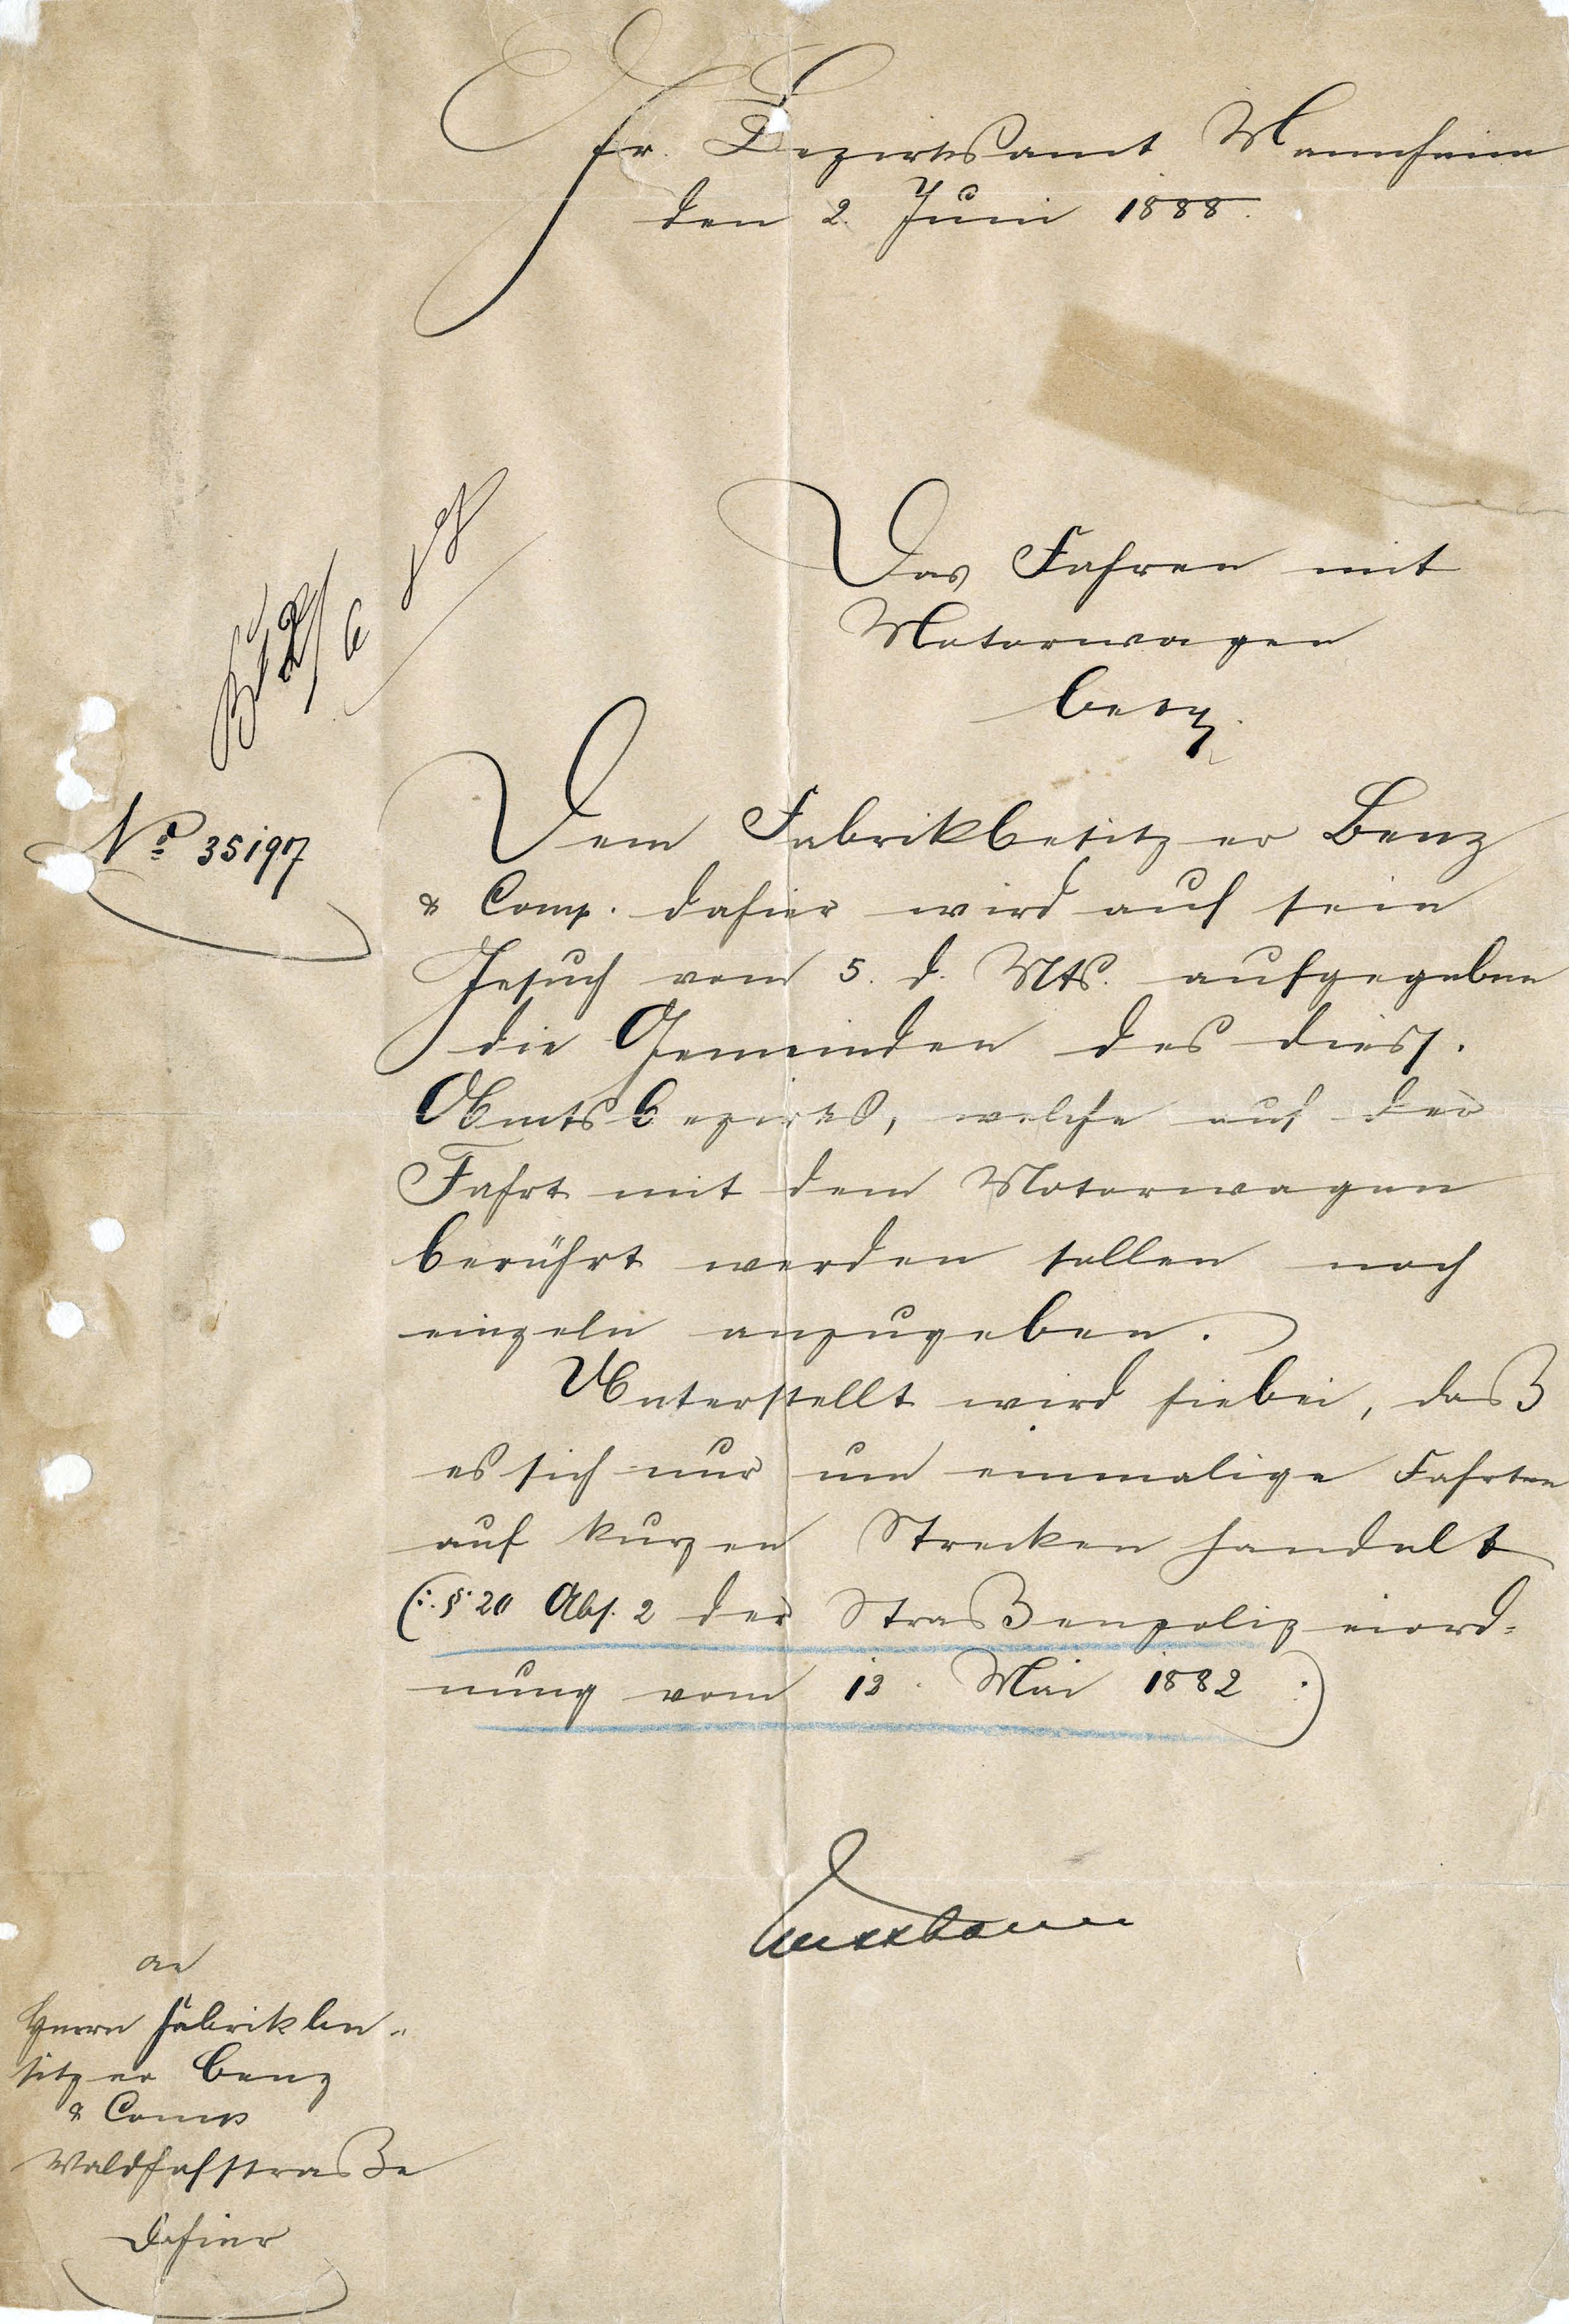 Gr. Bezirksamt Mannheim
den 2. Juni 1888.
Das Fahren mit
Motorwagen
betr.
2/6 88
No 35197
Dem Fabrikbesitzer Benz
& Comp. dahier wird auf sein
Gesuch vom 5. d. Mts. aufgegeben
die Gemeinden des dies.
Amtsbezirks, welche auf der
Fahrt mit dem Motorwagen
berührt werden sollen noch
einzeln anzugeben.
Unterstellt wird hiebei, daß
es sich nur um einmalige Fahrten
auf kurzen Strecken handelt
(:§ 20 Abs. 2 der Straßenpolizeiord-
nung vom 12. Mai 1882 :)
an
Herrn Fabrikbe-
sitzer Benz
& Comp
Waldhofstraße
Dahier